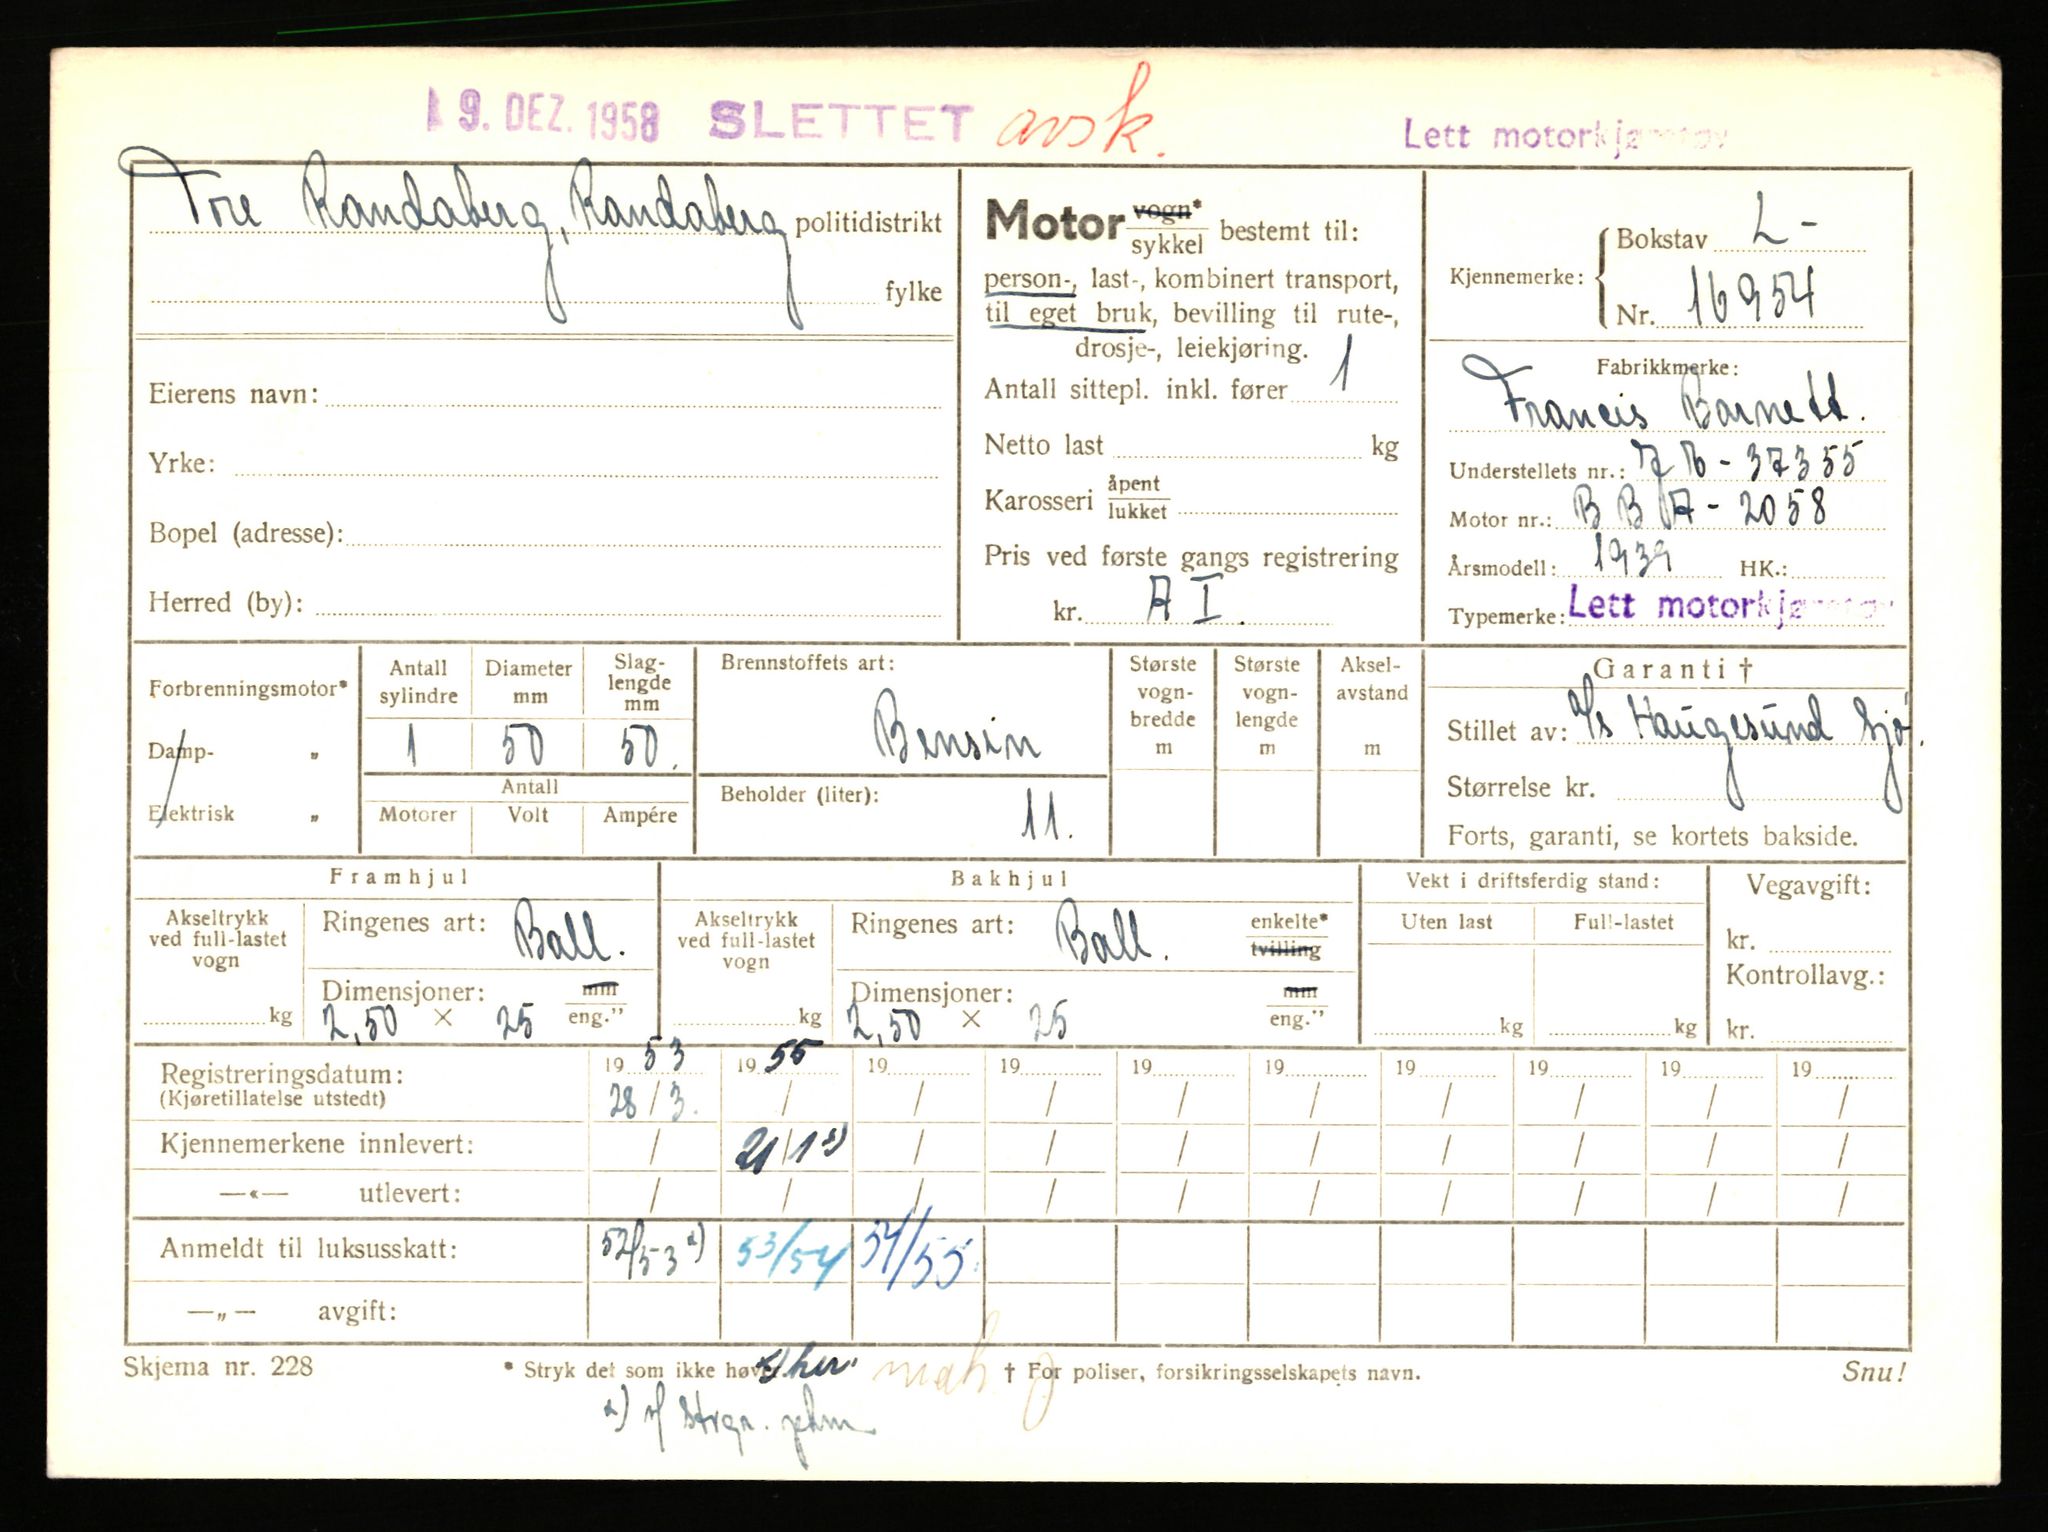 19. DEZ. 1958 SLETTET avsk.
Lett motorkjøretøy
Tore Randaberg, Randaberg politidistrikt
fylke
Eierens navn:
Yrke:
Bopel (adresse):
Herred (by):
Motor vogn* / sykkel bestemt til:
person-, last-, kombinert transport,
til eget bruk, bevilling til rute-,
drosje-, leiekjøring.
Antall sittepl. inkl. fører 1
Netto last kg
Karosseri åpent / lukket
Pris ved første gangs registrering
kr. A I.
Kjennemerke: Bokstav L-
Nr. 16954
Fabrikkmerke:
Francis Barnett.
Understellets nr.: 7 B - 37355
Motor nr.: BBA - 2058
Årsmodell: 1939 HK.:
Typemerke: Lett motorkjøretøy
Forbrenningsmotor*
Damp- „
Elektrisk „
Antall sylindre 1
Diameter mm 50
Slag-lengde mm 50.
Antall
Motorer Volt Ampére
Brennstoffets art:
Bensin
Beholder (liter):
11.
Største vogn-bredde m
Største vogn-lengde m
Aksel-avstand m
Garanti †
Stillet av: A/s Haugesund Sjø.
Størrelse kr.
Forts, garanti, se kortets bakside.
Framhjul
Akseltrykk ved full-lastet vogn
kg
Ringenes art: Ball.
Dimensjoner: mm
2,50 × 25 eng.”
Bakhjul
Akseltrykk ved full-lastet vogn
kg
Ringenes art: Ball. enkelte* / tvilling
Dimensjoner: mm
2,50 × 25 eng.”
Vekt i driftsferdig stand:
Uten last Full-lastet
kg kg
Vegavgift:
kr.
Kontrollavg.:
kr.
Registreringsdatum: 19 53 19 55 19 19 19 19 19 19 19 19
(Kjøretillatelse utstedt) 28 / 3. / / / / / / / / /
Kjennemerkene innlevert: / 21 / 1 / / / / / / / /
—«— utlevert: / / / / / / / / / /
Anmeldt til luksusskatt: 52/53 53/54 54/55
—„— avgift:
Skjema nr. 228
* Stryk det som ikke høver.
† For poliser, forsikringsselskapets navn.
Snu!